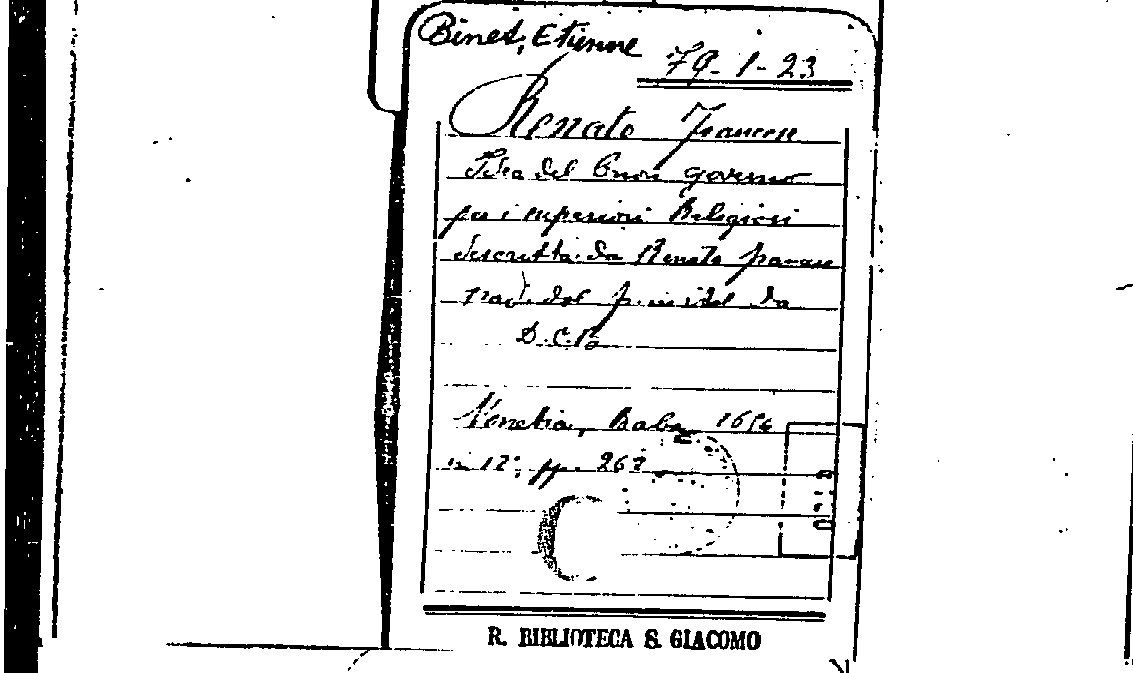 Binet, Etienne
79-1-23
Renato Francese
Idea del buon governo
per i superiori Religiosi
descritta da Renato francese
trad. dal da
D. C. B.
Venetia, Baba, 1656
in 12°, pp. 262
R. BIBLIOTECA S. GIACOMO